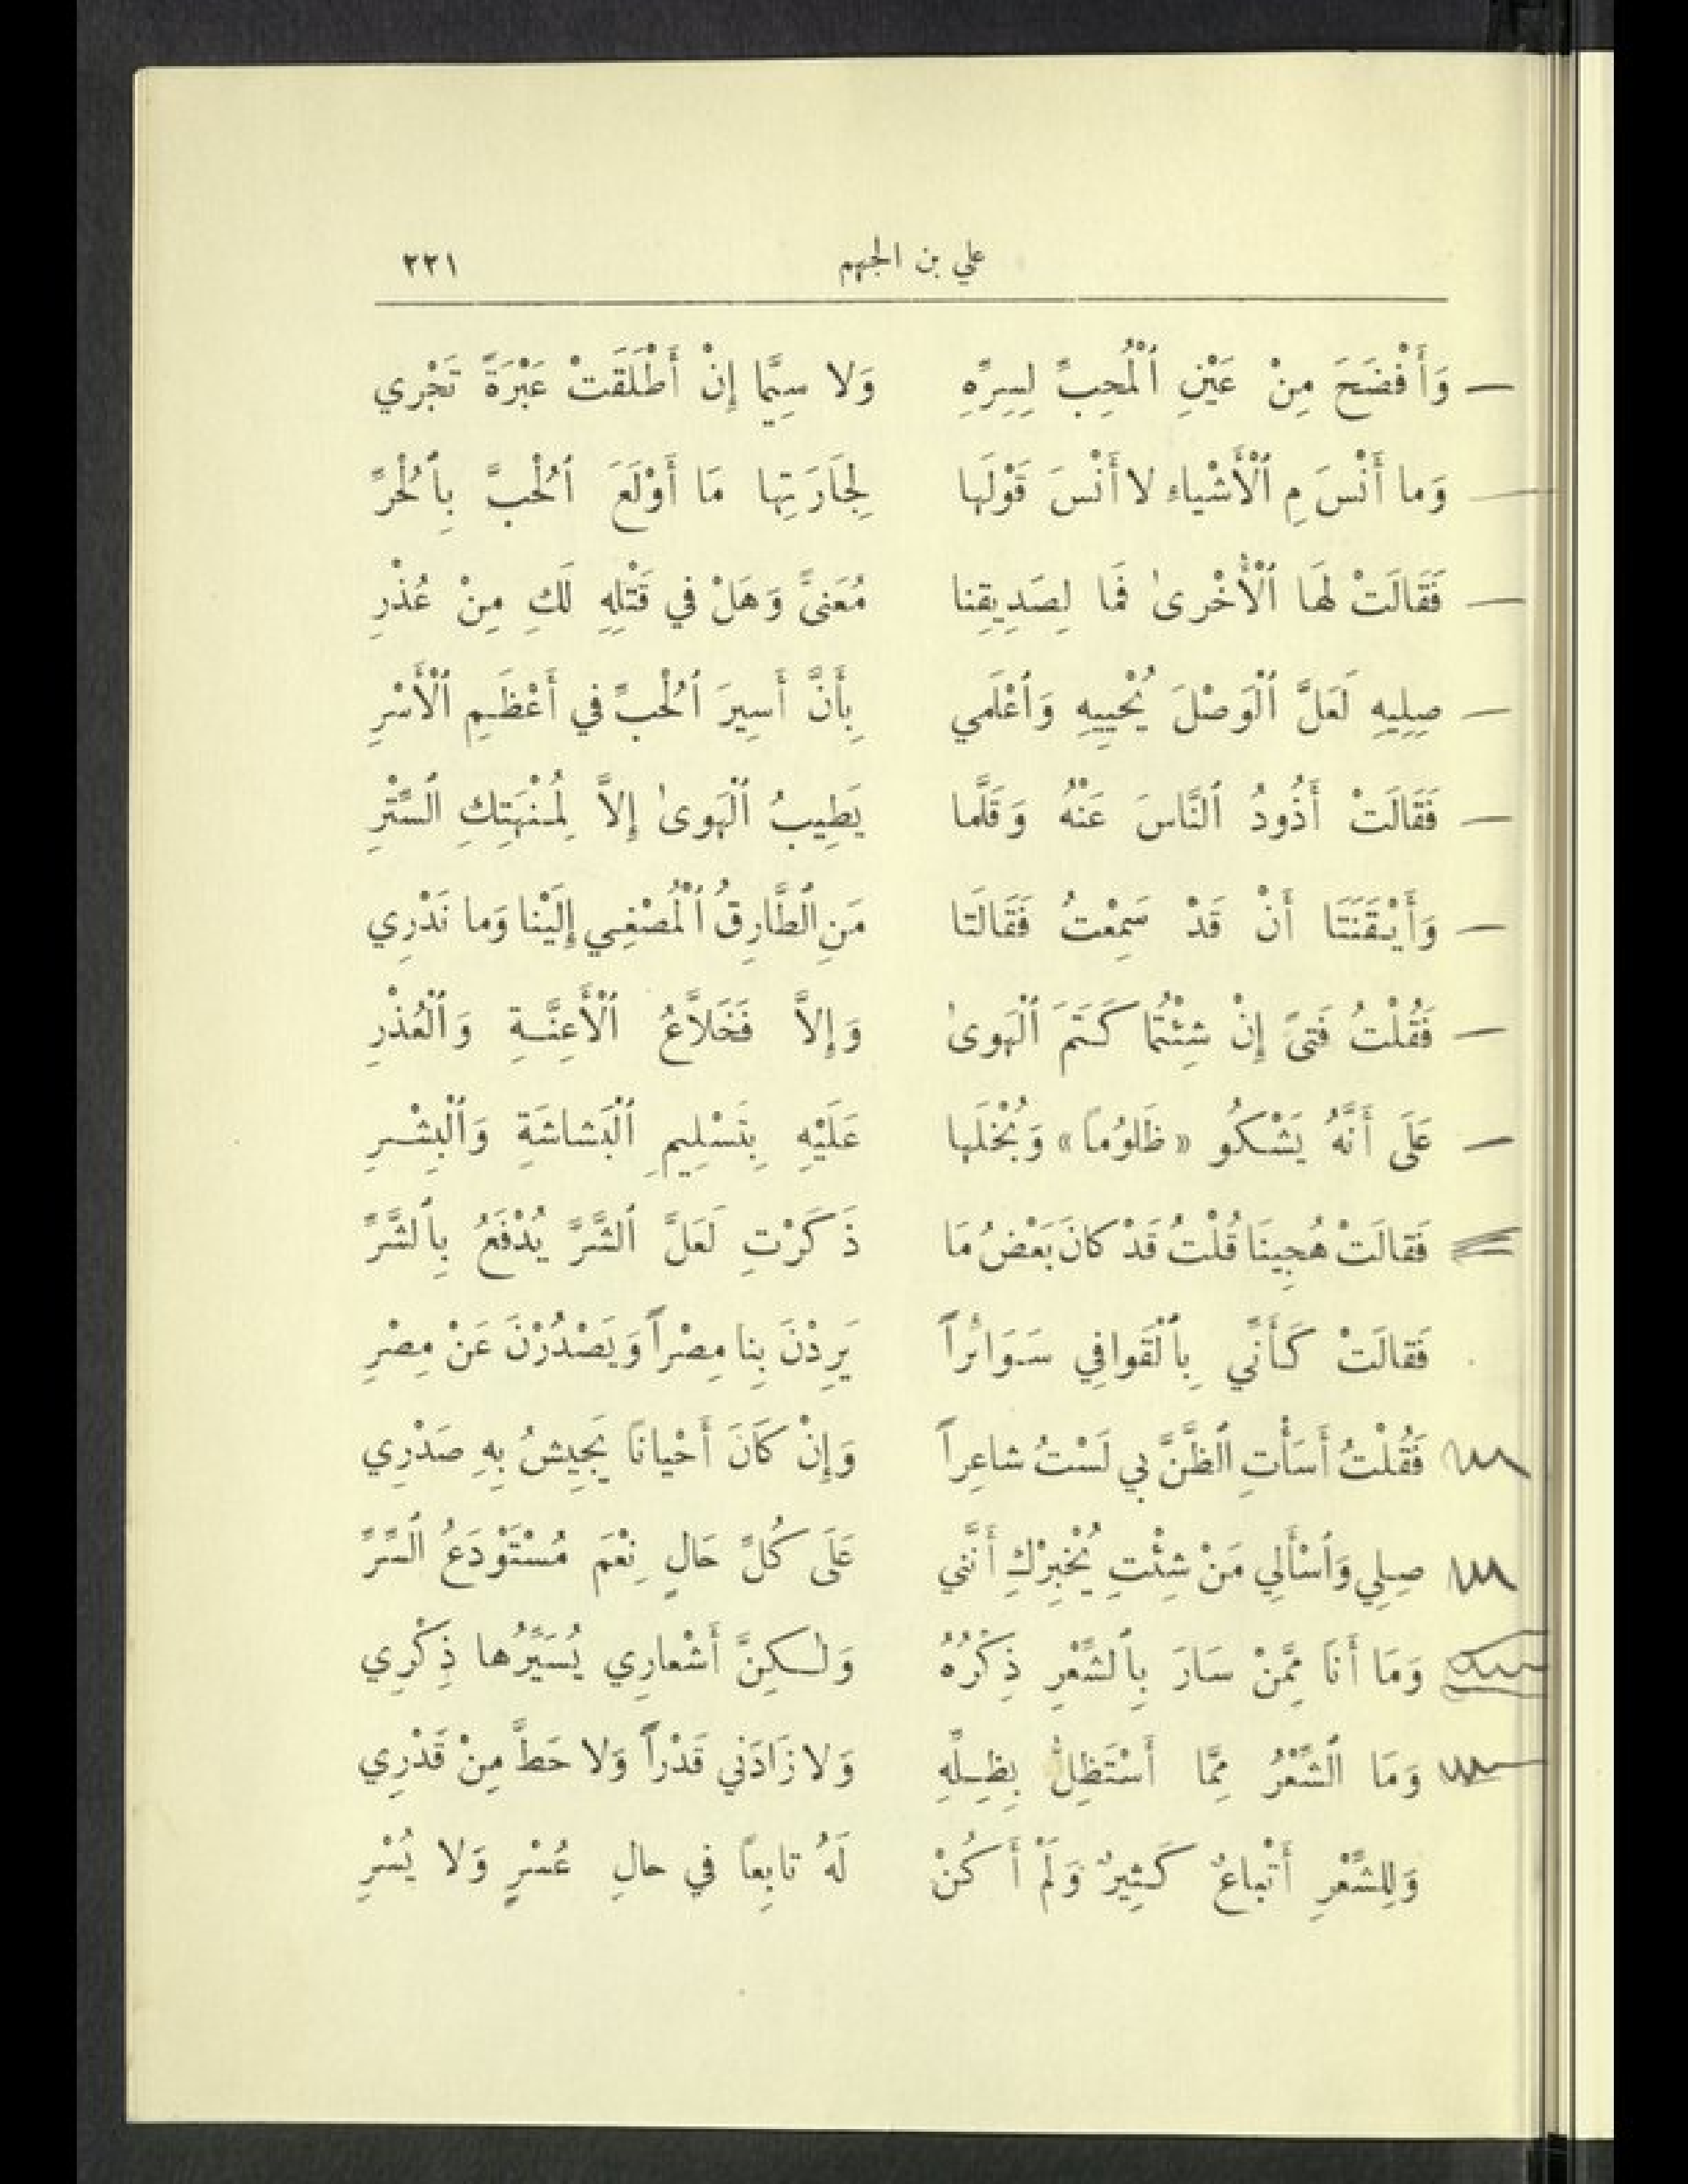 علي بن الجهم ٢٢١
وَأَفْضَحَ مِنْ عَيْنِ ٱلْمُحِبِّ لِسِرِّهِ وَلا سِيَّما إِنْ أَطْلَقَتْ عَبْرَةً تَجْري
وَما أَنْسَ مِ ٱلْأَشْياءِ لا أَنْسَ قَوْلَها لِجَارَتِها مَا أَوْلَعَ ٱلْحُبَّ بِٱلْحُرِّ
فَقَالَتْ لَهَا ٱلْأُخْرىٰ فَما لِصَدِيقِنا مُعَنىًّ وَهَلْ في قَتْلِهِ لَكِ مِنْ عُذْرِ
صِلِيهِ لَعَلَّ ٱلْوَصْلَ يُحْيِيهِ وَٱعْلَمي بِأَنَّ أَسِيرَ ٱلْحُبِّ في أَعْظَمِ ٱلْأَسْرِ
فَقَالَتْ أَذُودُ ٱلنَّاسَ عَنْهُ وَقَلَّما يَطِيبُ ٱلْهَوىٰ إِلاَّ لِمُنْهَتِكِ ٱلسِّتْرِ
وَأَيْقَنَتَا أَنْ قَدْ سَمِعْتُ فَقَالَتا مَنِ ٱلطَّارِقُ ٱلْمُصْغِي إِلَيْنا وَما نَدْرِي
فَقُلْتُ فَتىً إِنْ شِئْتُما كَتَمَ ٱلْهَوىٰ وَإِلاَّ فَخَلاَّعُ ٱلْأَعِنَّةِ وَٱلْعُذْرِ
عَلَى أَنَّهُ يَشْكُو «ظَلُوماً» وَبُخْلَها عَلَيْهِ بِتَسْلِيمِ ٱلْبَشاشَةِ وَٱلْبِشْرِ
فَقالَتْ هُجِينَا قُلْتُ قَدْ كانَ بَعْضُ مَا ذَكَرْتِ لَعَلَّ ٱلشَّرَّ يُدْفَعُ بِٱلشَّرِّ
فَقالَتْ كَأَنِّي بِٱلْقَوافِي سَوَائراً يَرِدْنَ بِنا مِصْراً وَيَصْدُرْنَ عَنْ مِصْرِ
فَقُلْتُ أَسَأْتِ ٱلظَّنَّ بي لَسْتُ شاعِراً وَإِنْ كَانَ أَحْياناً يَجِيشُ بِهِ صَدْرِي
صِلِي وَٱسْأَلِي مَنْ شِئْتِ يُخْبِرْكِ أَنَّني عَلَى كُلِّ حَالٍ نِعْمَ مُسْتَوْدَعُ ٱلسِّرِّ
وَمَا أَنَا مِمَّنْ سَارَ بِٱلشِّعْرِ ذِكْرُهُ وَلٰكِنَّ أَشْعارِي يُسَيِّرُها ذِكْرِي
وَمَا ٱلشِّعْرُ مِمَّا أَسْتَظِلُّ بِظِلِّهِ وَلا زَادَني قَدْراً وَلا حَطَّ مِنْ قَدْرِي
وَلِلشِّعْرِ أَتْباعٌ كَثِيرٌ وَلَمْ أَكُنْ لَهُ تابِعاً في حالِ عُسْرٍ وَلا يُسْرِ